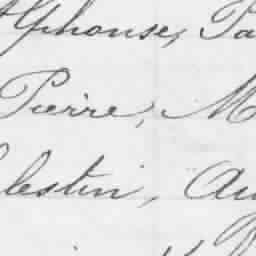 Alphonse, Pa
Pierre, M
lestin, Au